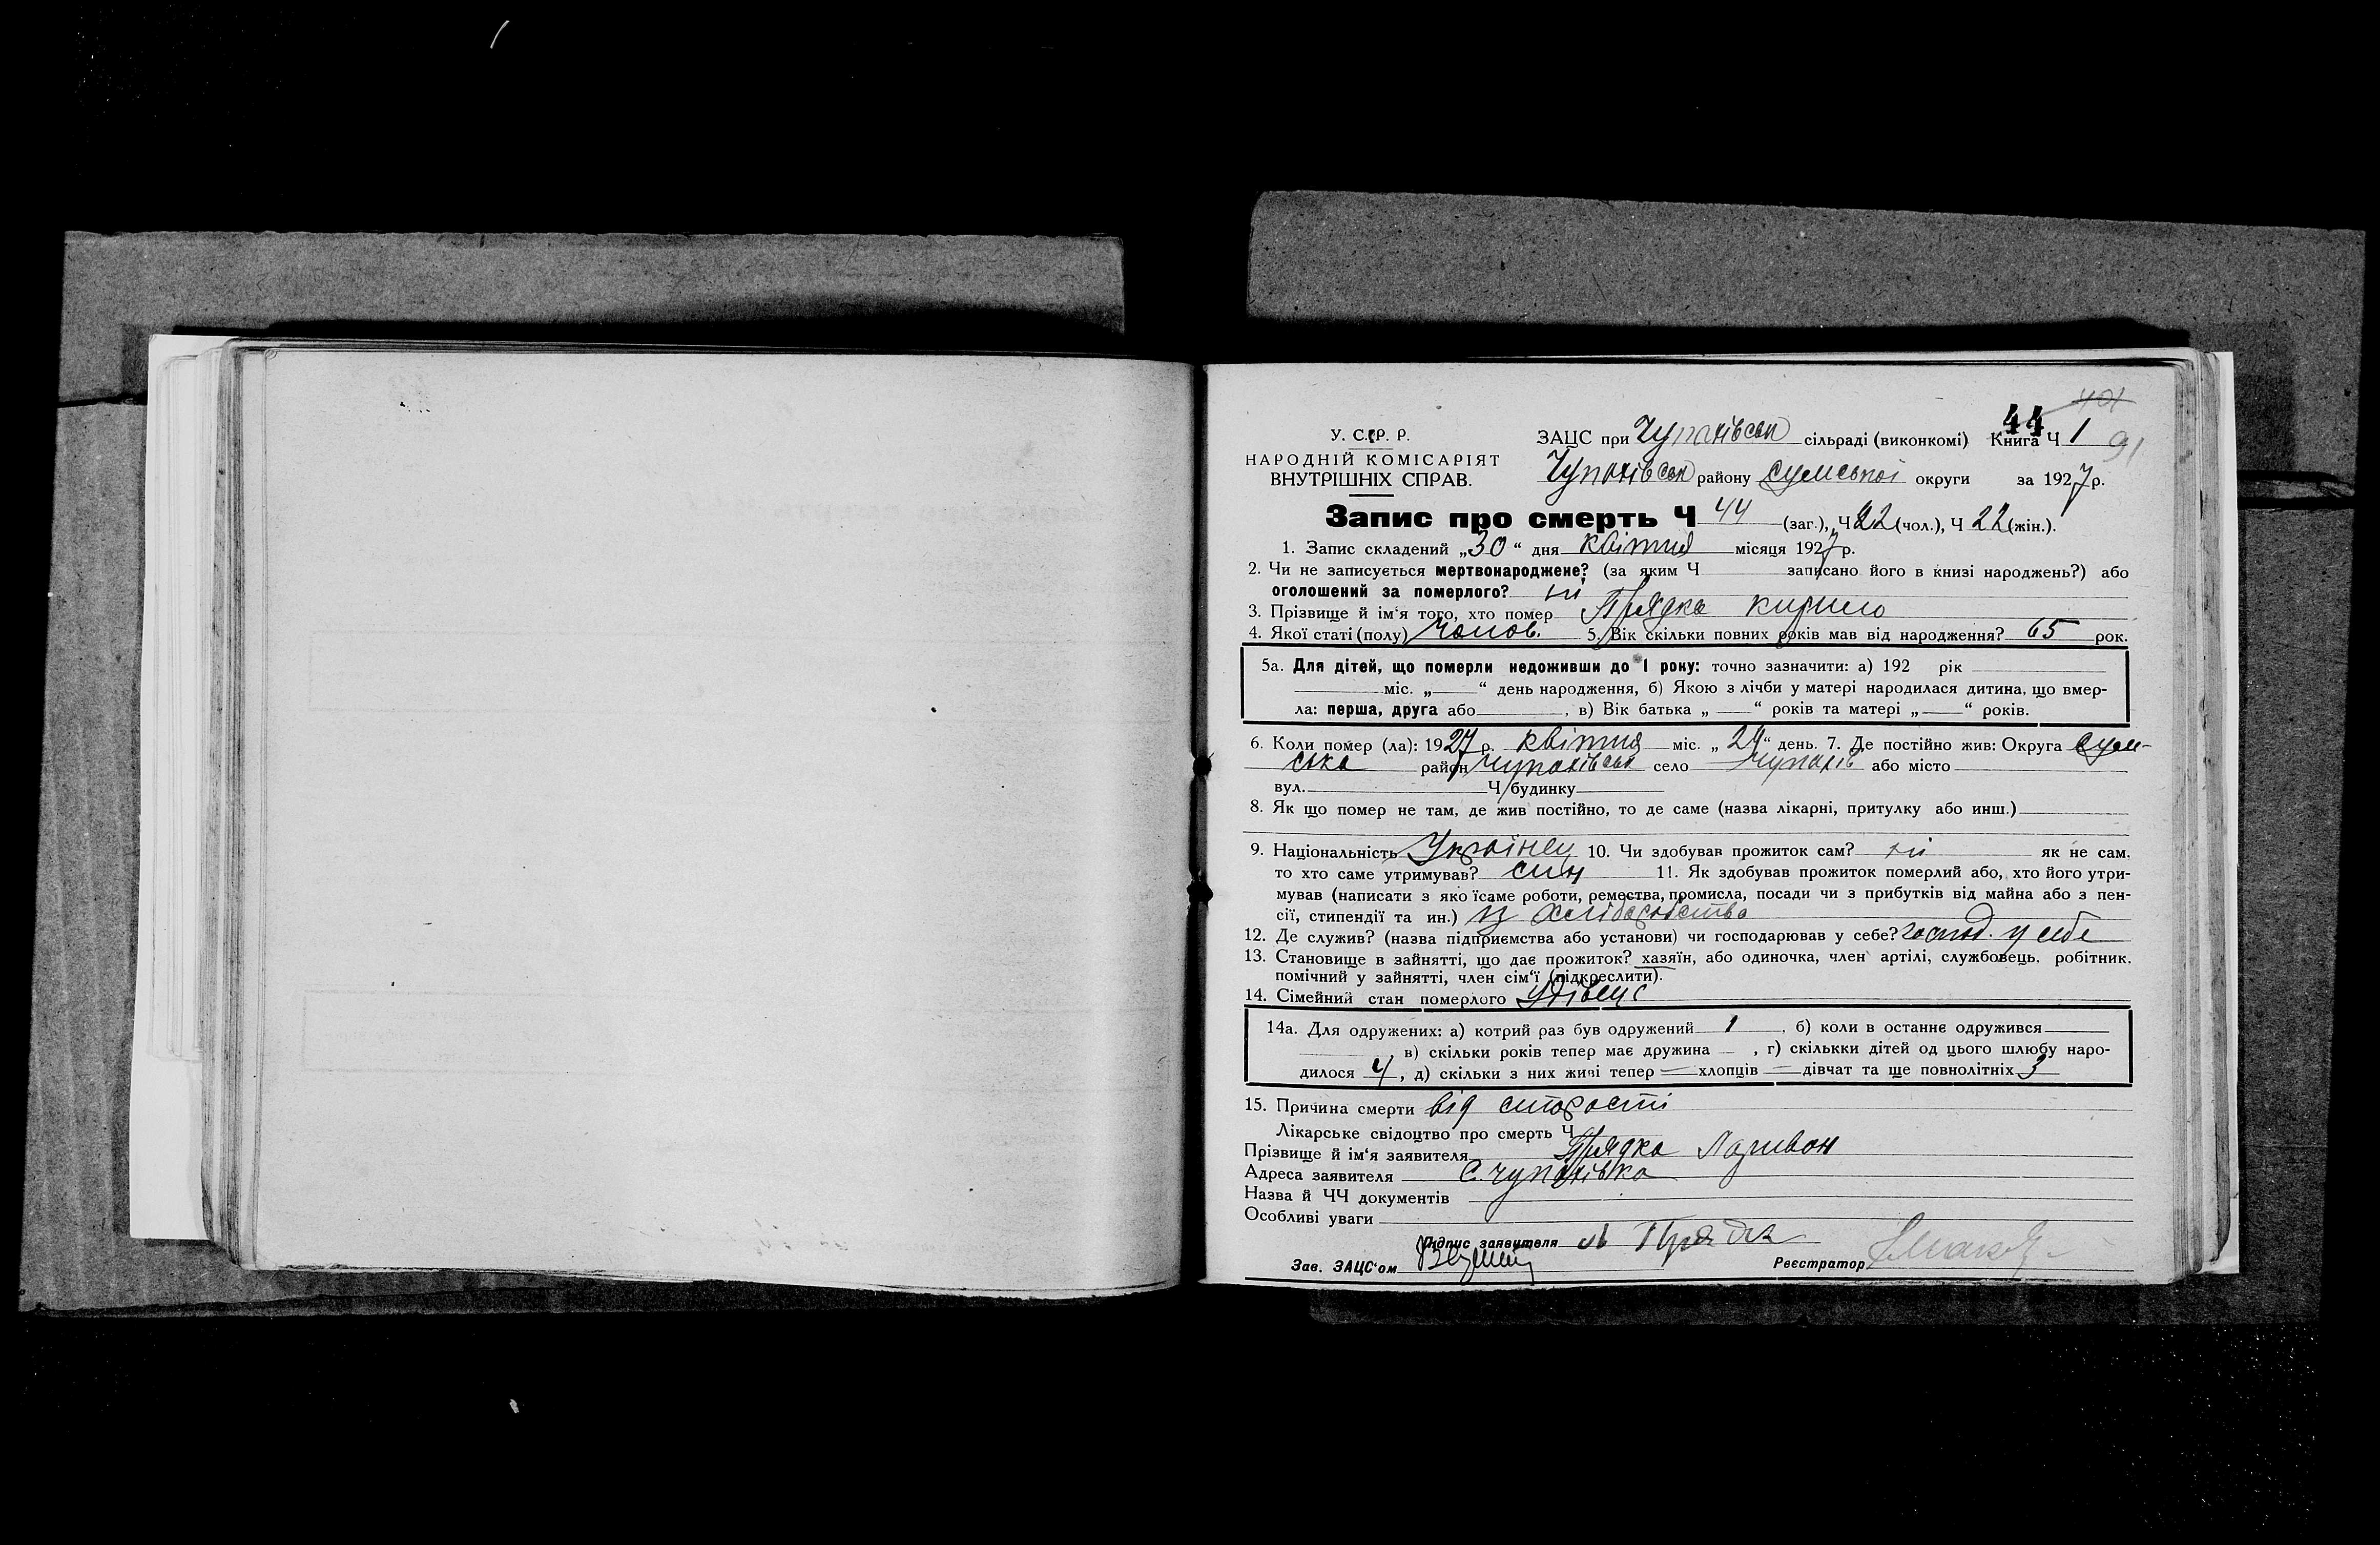 44
1 91
У. С. Р. Р.
ЗАЦС при Чупахівськ сільраді (виконкомі) Книга Ч 1
НАРОДНІЙ КОМІСАРІЯТ
ВНУТРІШНІХ СПРАВ.
Чупахівськ району Сумської округи за 1927 р.
Запис про смерть Ч 44 (заг.), Ч 22 (чол.), Ч 22 (жін.).
1. Запис складений „30“ дня квітня місяця 1927 р.
2. Чи не записується мертвонароджене? (за яким Ч записано його в книзі народжень?) або
оголошений за померлого? ні
3. Прізвище й ім‘я того, хто помер Прядка Кирило
4. Якої статі (полу) чолов. 5. Вік скільки повних років мав від народження? 65 рок.
5а. Для дітей, що померли недоживши до 1 року: точно зазначити: а) 192 рік
міс. „ “ день народження, б) Якою з лічби у матері народилася дитина, що вмер-
ла: перша, друга або , в) Вік батька „ “ років та матері „ “ років.
6. Коли помер (ла): 1927 р. квітня міс. „29“ день. 7. Де постійно жив: Округа Сум-
ська район Чупахівськ село Чупахів або місто
вул. Ч будинку
8. Як що помер не там, де жив постійно, то де саме (назва лікарні, притулку або инш.)
9. Національність Українец 10. Чи здобував прожиток сам? ні як не сам,
то хто саме утримував? син 11. Як здобував прожиток померлий або, хто його утри-
мував (написати з яко їсаме роботи, ремества, промисла, посади чи з прибутків від майна або з пен-
сії, стипендії та ин.) із хліборобства
12. Де служив? (назва підприємства або установи) чи господарював у себе? господ. у себе
13. Становище в зайнятті, що дає прожиток? хазяїн, або одиночка, член артілі, службовець, робітник,
помічний у зайнятті, член сім‘ї (підкреслити).
14. Сімейний стан померлого удівець
14а. Для одружених: а) котрий раз був одружений 1 , б) коли в останнє одружився
, в) скільки років тепер має дружина — , г) скількки дітей од цього шлюбу наро-
дилося 4 , д) скільки з них живі тепер — хлопців — дівчат та ще повнолітніх 3
15. Причина смерти від старості
Лікарське свідоцтво про смерть Ч
Прізвище й ім‘я заявителя Прядка Ларивон
Адреса заявителя С. Чупахівка
Назва й ЧЧ документів
Особливі уваги
Підпис заявителя Прядка
Зав. ЗАЦС‘ом Реєстратор